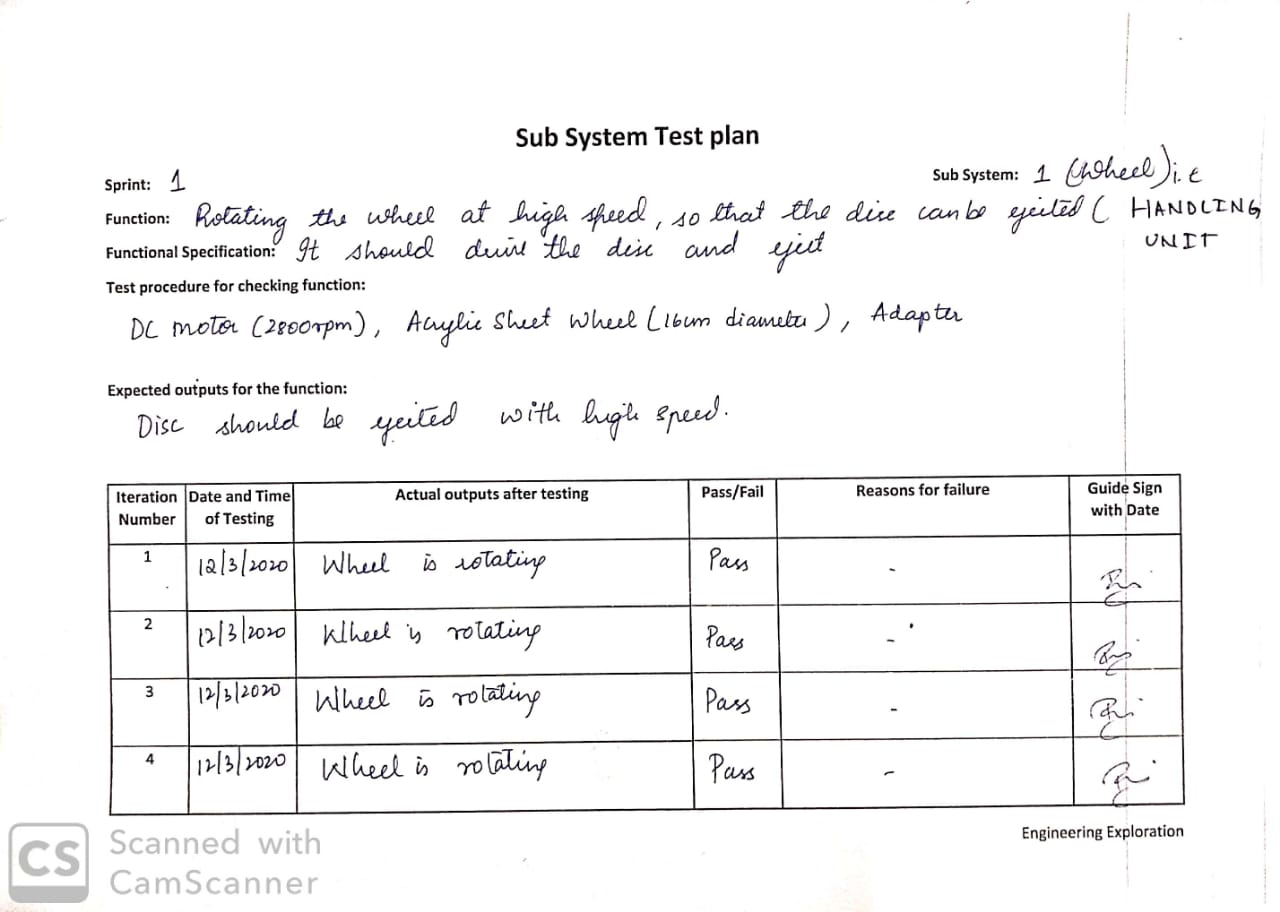 Sub System Test plan
Sprint: 1 Sub System: 1 (Wheel) i.e
Function: Rotating the wheel at high speed, so that the disc can be ejected ( HANDLING
UNIT
Functional Specification: It should drive the disc and eject
Test procedure for checking function:
DC motor (2800rpm), Acrylic Sheet Wheel (16cm diameter), Adapter
Expected outputs for the function:
Disc should be ejected with high speed.
Iteration Number Date and Time of Testing Actual outputs after testing Pass/Fail Reasons for failure Guide Sign with Date
1 12/3/2020 Wheel is rotating Pass -
2 12/3/2020 Wheel is rotating Pass -
3 12/3/2020 Wheel is rotating Pass -
4 12/3/2020 Wheel is rotating Pass -
Engineering Exploration
CS Scanned with
CamScanner